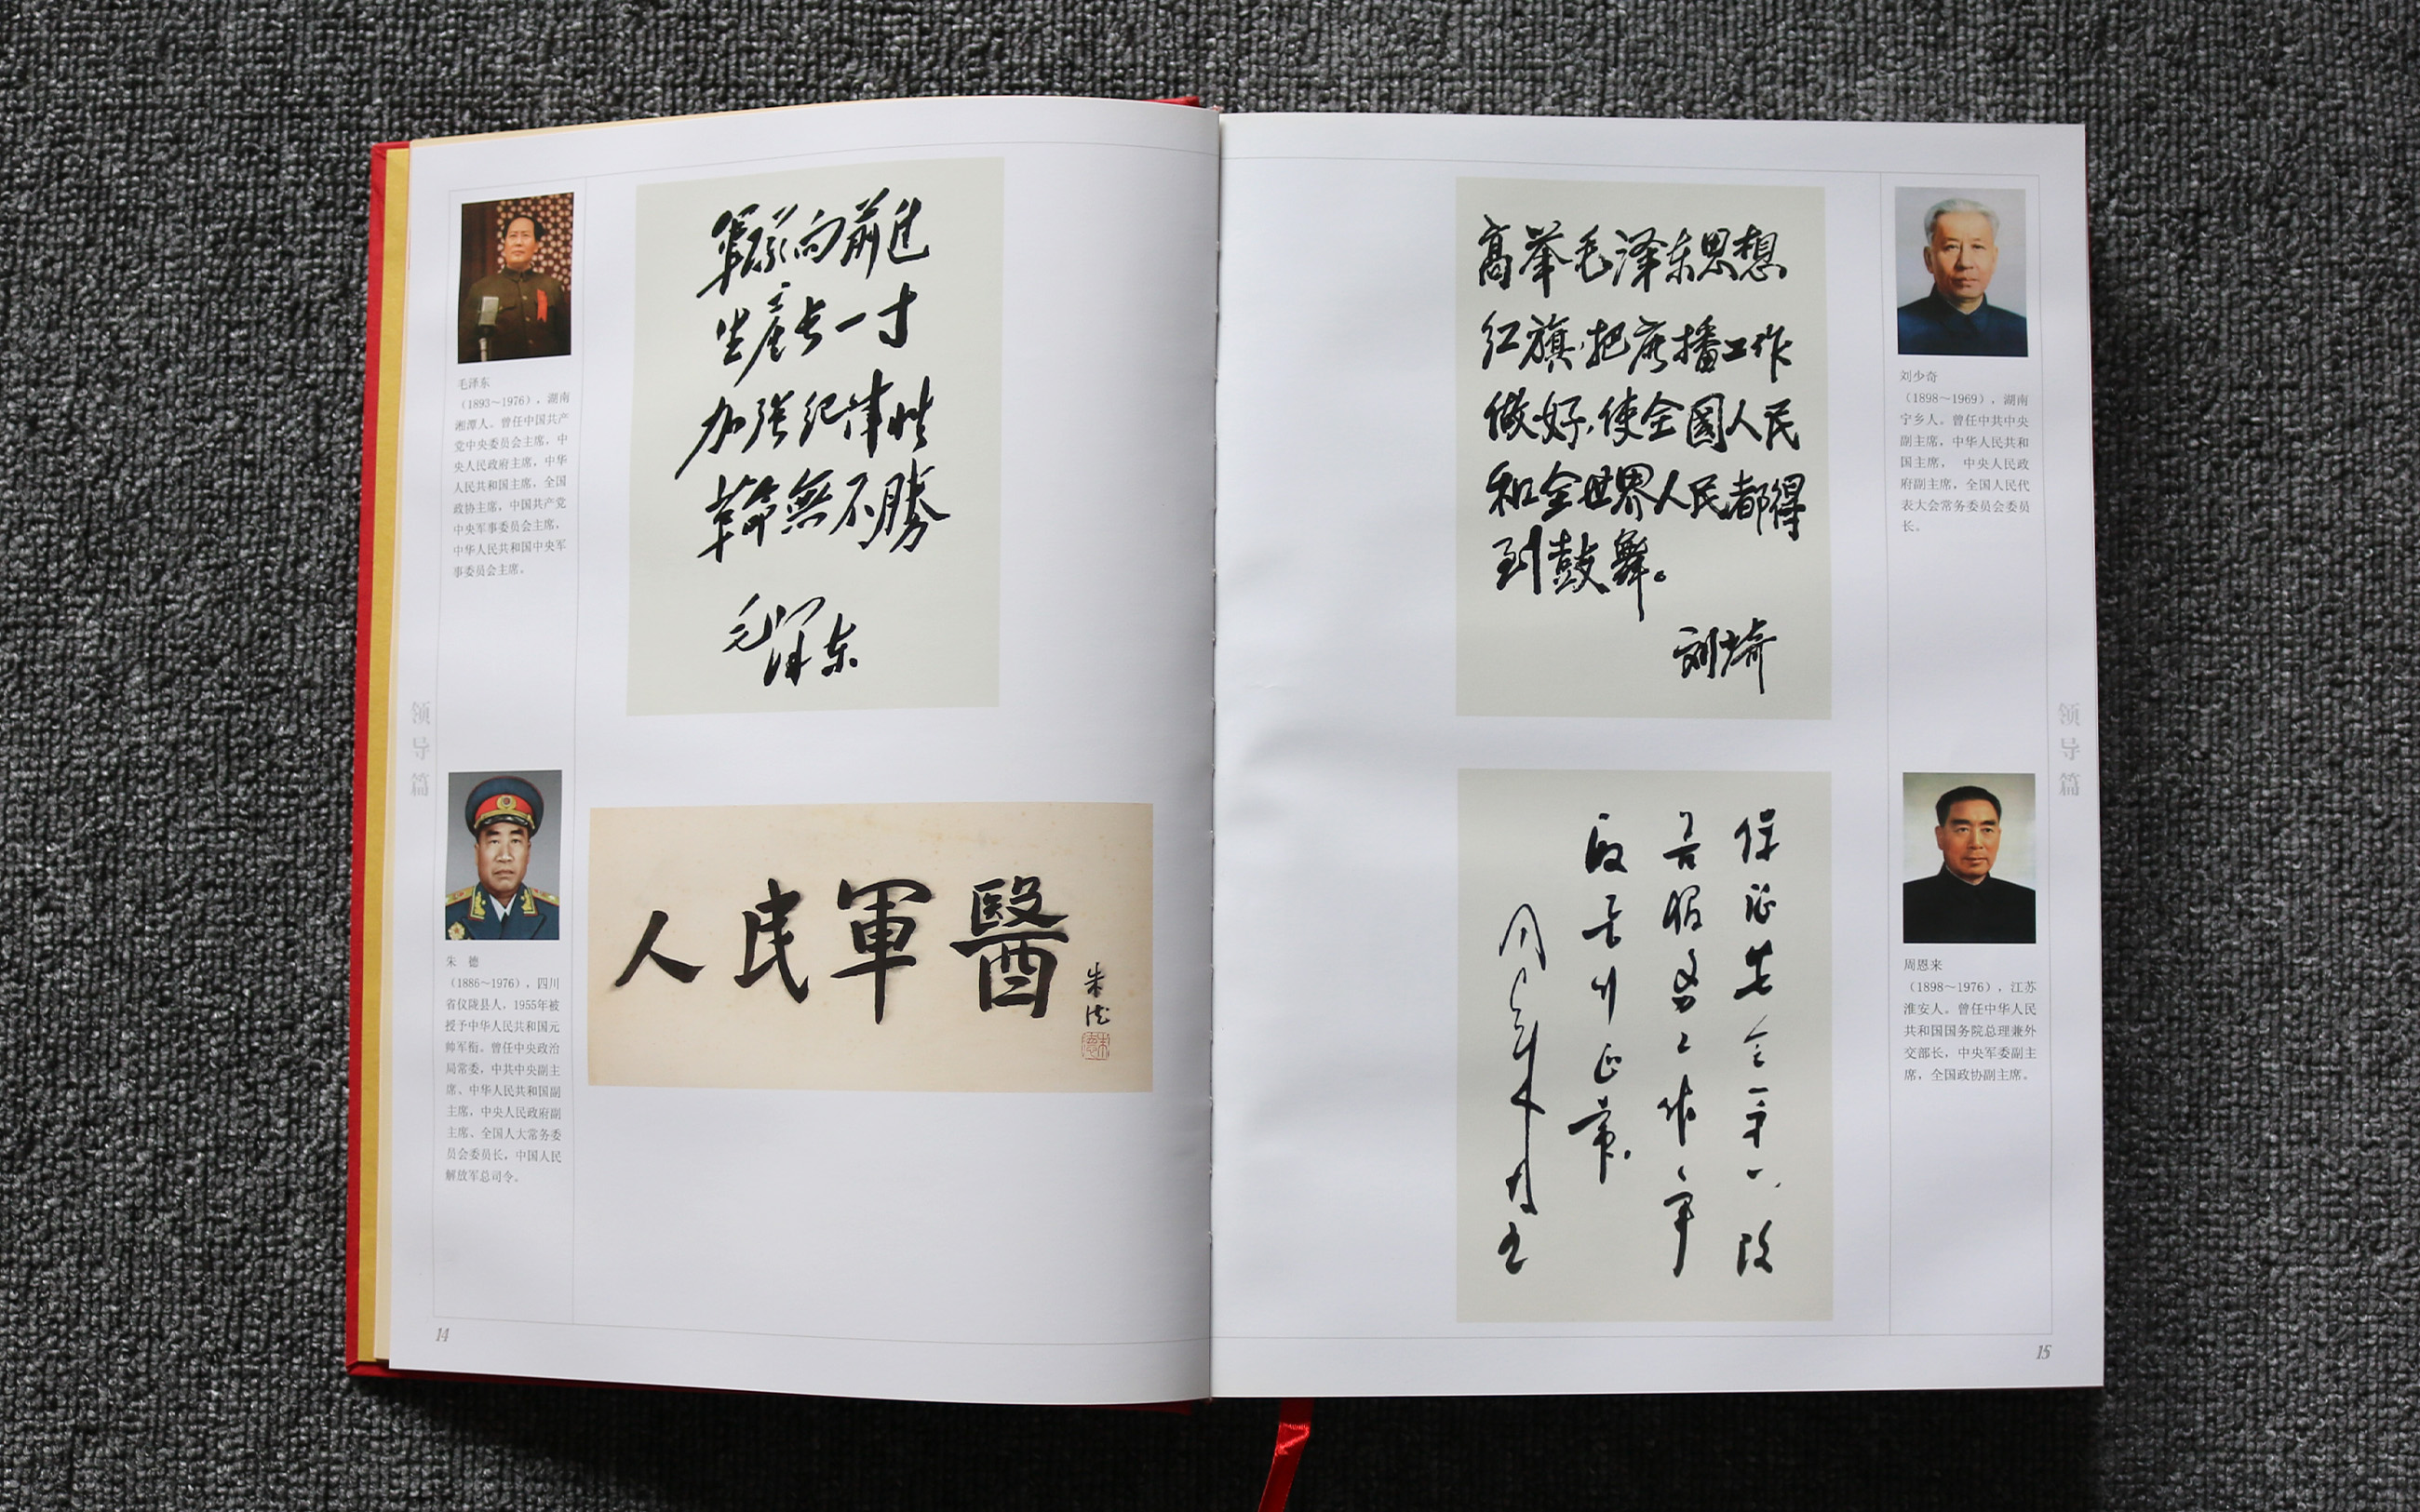 毛泽东
（1893～1976），湖南
湘潭人。曾任中国共产
党中央委员会主席，中
央人民政府主席，中华
人民共和国主席，全国
政协主席，中国共产党
中央军事委员会主席，
中华人民共和国中央军
事委员会主席。
軍隊向前进
生產长一寸
加強纪律性
革命無不勝
毛泽东
领导篇
朱 德
（1886～1976），四川
省仪陇县人，1955年被
授予中华人民共和国元
帅军衔。曾任中央政治
局常委，中共中央副主
席、中华人民共和国副
主席，中央人民政府副
主席、全国人大常务委
员会委员长，中国人民
解放军总司令。
人民軍醫
朱德
14
高举毛泽东思想
红旗，把广播工作
做好，使全國人民
和全世界人民都得
到鼓舞。
刘少奇
刘少奇
（1898～1969），湖南
宁乡人。曾任中共中央
副主席，中华人民共和
国主席， 中央人民政
府副主席，全国人民代
表大会常务委员会委员
长。
领导篇
保证安全第一，改
善服务工作，争
取飞行正常。
周恩来
周恩来
（1898～1976），江苏
淮安人。曾任中华人民
共和国国务院总理兼外
交部长，中央军委副主
席，全国政协副主席。
15